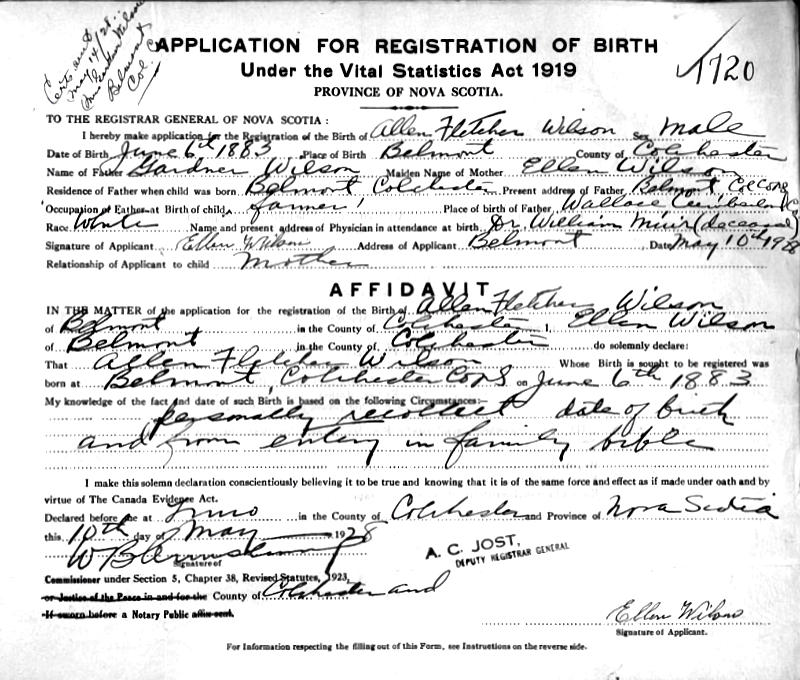 Cert. and
May 14/28.
Belmont
Col. Co.
APPLICATION FOR REGISTRATION OF BIRTH
Under the Vital Statistics Act 1919
PROVINCE OF NOVA SCOTIA.
1720
TO THE REGISTRAR GENERAL OF NOVA SCOTIA:
I hereby make application for the Registration of the Birth of Allen Fletcher Wilson Sex Male
Date of Birth June 6th 1883 Place of Birth Belmont County of Colchester
Name of Father Gardner Wilson Maiden Name of Mother Ellen Wilson
Residence of Father when child was born Belmont Colchester Present address of Father Belmont, Col Co NS
Occupation of Father at Birth of child farmer Place of birth of Father Wallace Cumberland Co
Race White Name and present address of Physician in attendance at birth Dr. William Muir (deceased)
Signature of Applicant Ellen Wilson Address of Applicant Belmont Date May 10th 1928
Relationship of Applicant to child Mother
AFFIDAVIT
IN THE MATTER of the application for the registration of the Birth of Allen Fletcher Wilson
of Belmont in the County of Colchester I, Ellen Wilson
of Belmont in the County of Colchester do solemnly declare:
That Allen Fletcher Wilson Whose Birth is sought to be registered was
born at Belmont, Colchester Co NS on June 6th 1883
My knowledge of the fact and date of such Birth is based on the following Circumstances:—
personally recollect date of birth
and from entery in family bible
I make this solemn declaration conscientiously believing it to be true and knowing that it is of the same force and effect as if made under oath and by
virtue of The Canada Evidence Act.
Declared before me at Truro in the County of Colchester and Province of Nova Scotia
this 10th day of May 1928
A. C. JOST,
DEPUTY REGISTRAR GENERAL
Signature of
Commissioner under Section 5, Chapter 38, Revised Statutes, 1923,
or Justice of the Peace in and for the County of Colchester and
If sworn before a Notary Public affix seal.
Ellen Wilson
Signature of Applicant.
For Information respecting the filling out of this Form, see Instructions on the reverse side.